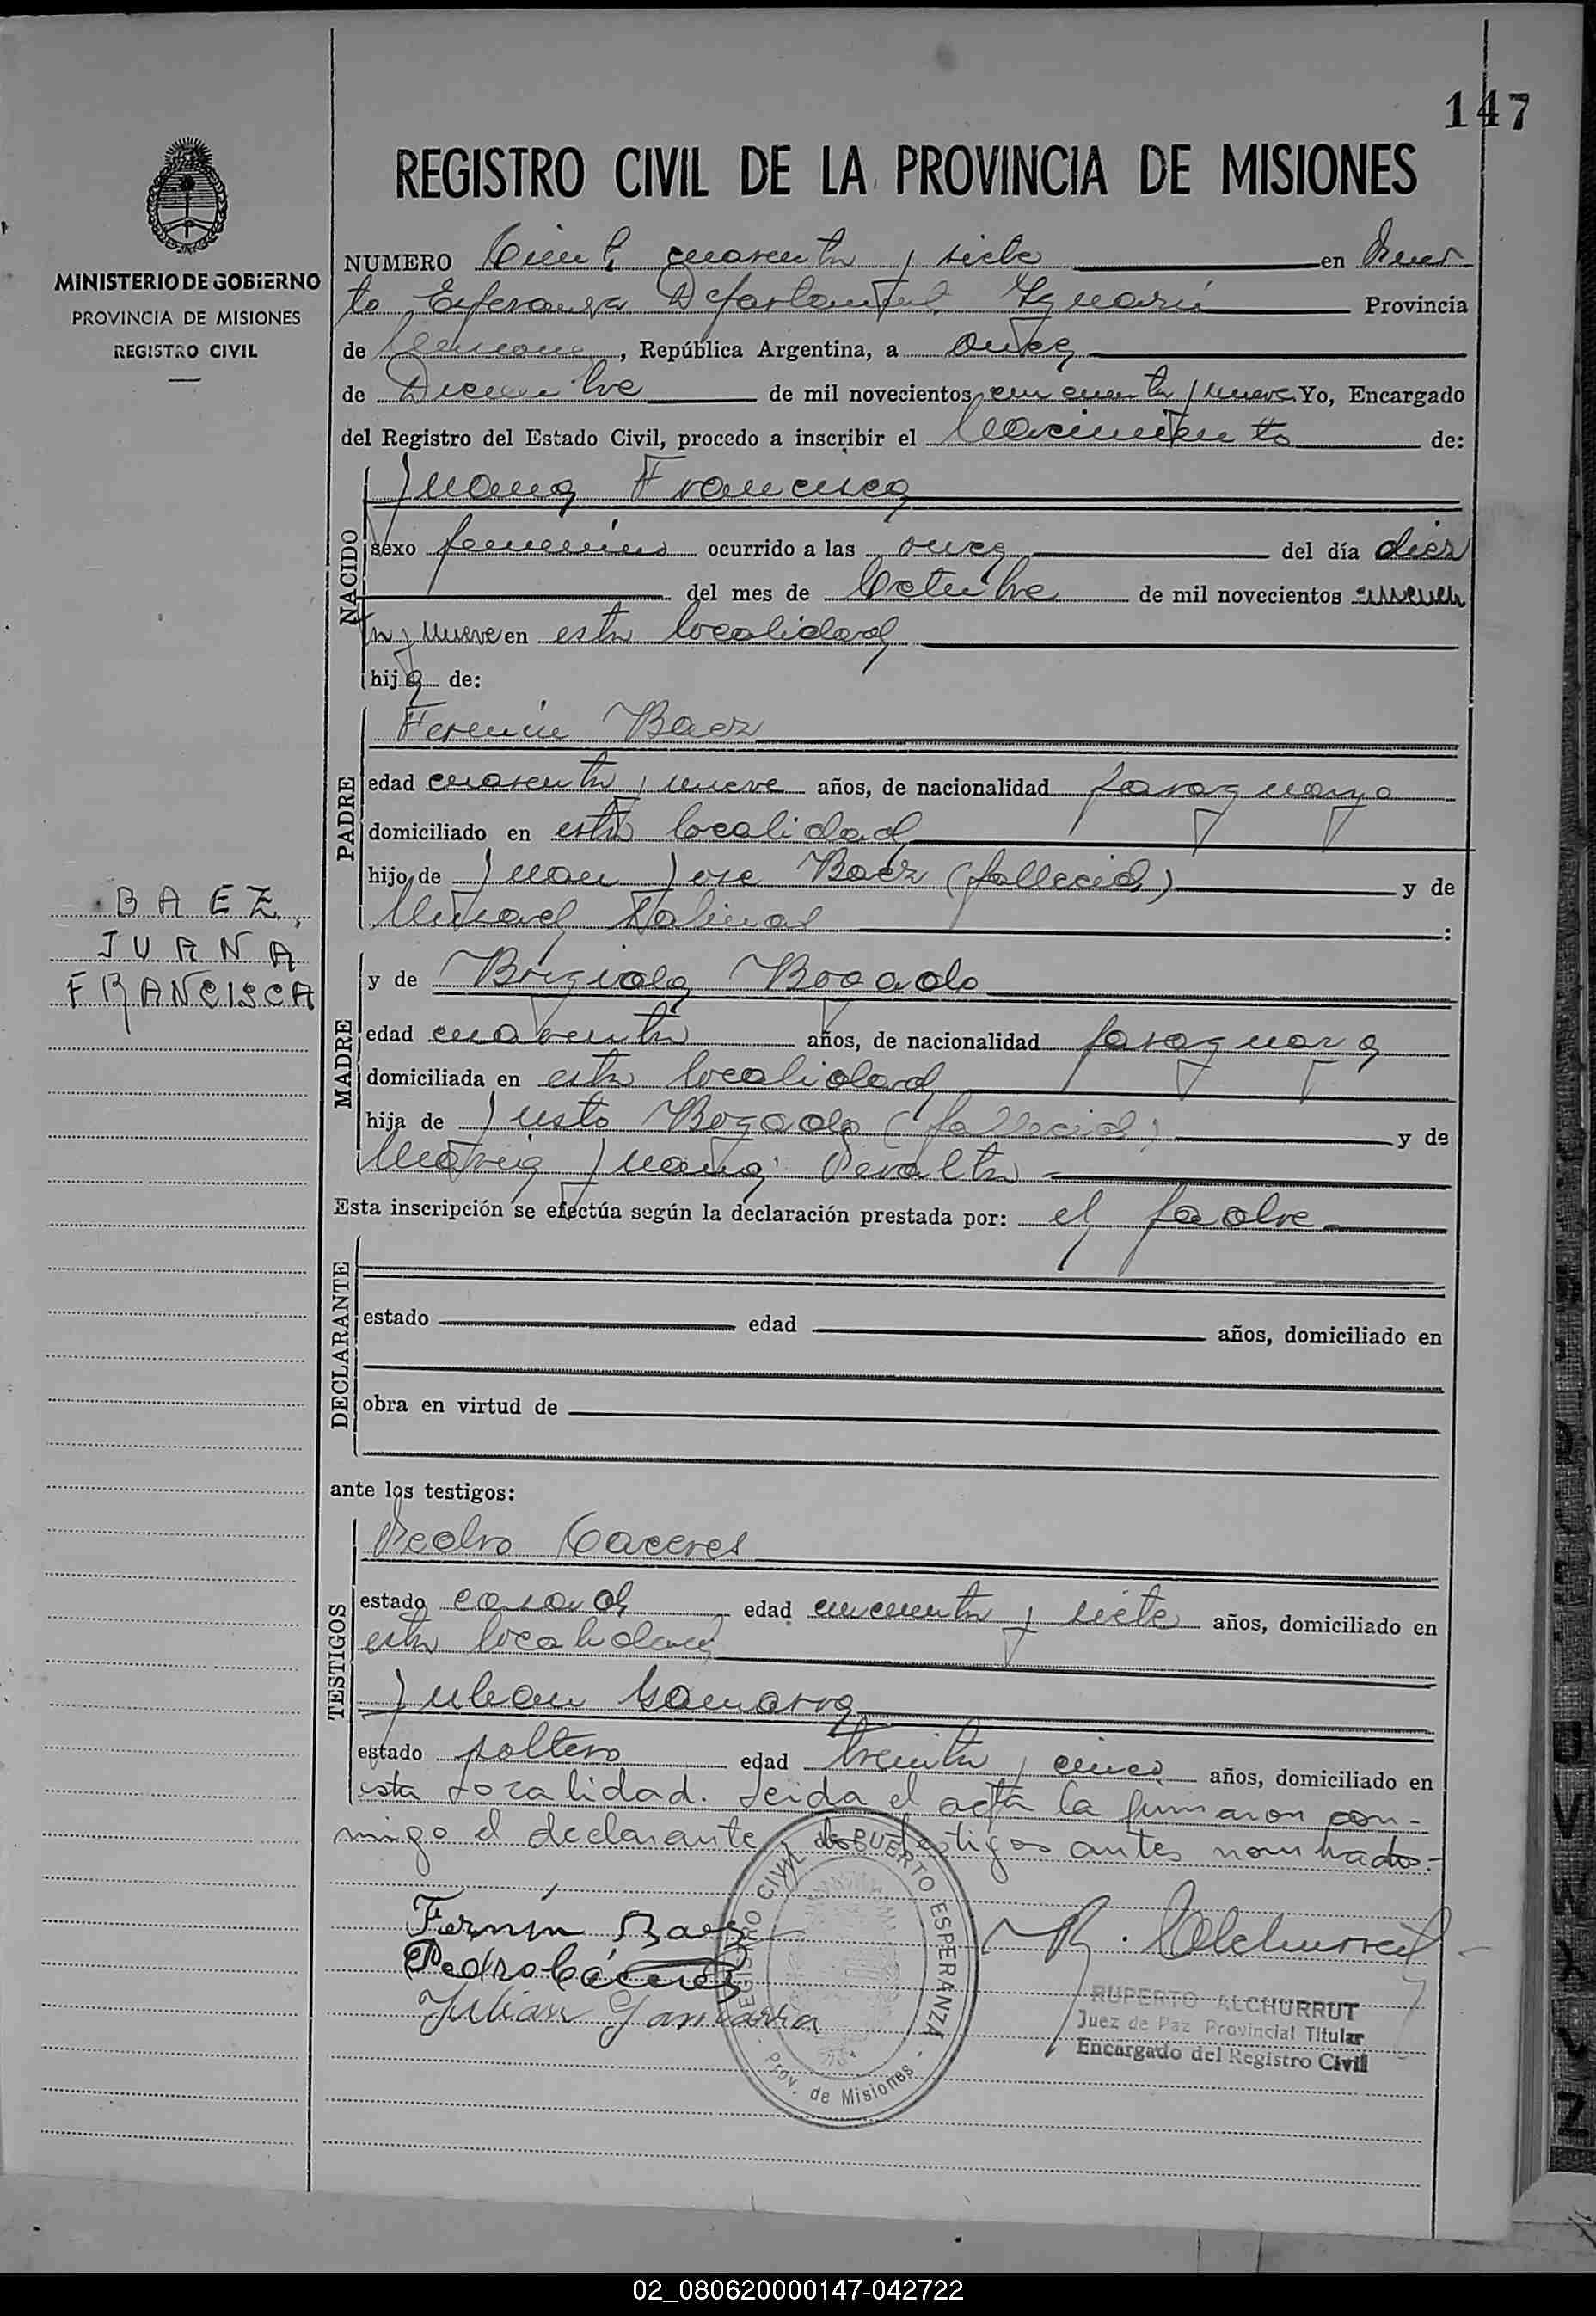 147
REGISTRO CIVIL DE LA PROVINCIA DE MISIONES
MINISTERIO DE GOBIERNO
PROVINCIA DE MISIONES
REGISTRO CIVIL
NUMERO cuarenta y siete en Puer
to Esperanza Departamento Iguazú Provincia
de Misiones, República Argentina, a once
de Diciembre de mil novecientos cincuenta y nueve Yo, Encargado
del Registro del Estado Civil, procedo a inscribir el Nacimiento de:
NACIDO
Juana Francisca
sexo femenino ocurrido a las once del día diez
del mes de Octubre de mil novecientos cincuen
ta y nueve en esta localidad
hija de:
PADRE
Fermin Baez
edad cuarenta y nueve años, de nacionalidad paraguayo
domiciliado en esta localidad
hijo de Juan Jose Baez (fallecido) y de
Salinas :
BAEZ,
JUANA
FRANCISCA
MADRE
y de Brigida Bogado
edad cuarenta años, de nacionalidad paraguaya
domiciliada en esta localidad
hija de Justo Bogado (fallecido) y de
Maria Juana Peralta
Esta inscripción se efectúa según la declaración prestada por: el padre
DECLARANTE
estado edad años, domiciliado en
obra en virtud de
ante los testigos:
TESTIGOS
Pedro Caceres
estado casado edad cincuenta y siete años, domiciliado en
esta localidad
Julian Gamarra
estado soltero edad treinta y cinco años, domiciliado en
esta localidad. Leida el acta la firmaron con-
migo el declarante y los testigos antes nombrados.-
Fermin Baez
Pedro Cáceres
Julián Gamarra
R. Alchurrut
REGISTRO CIVIL de PUERTO ESPERANZA
- Prov. de Misiones -
RUPERTO ALCHURRUT
Juez de Paz Provincial Titular
Encargado del Registro Civil
02_080620000147-042722